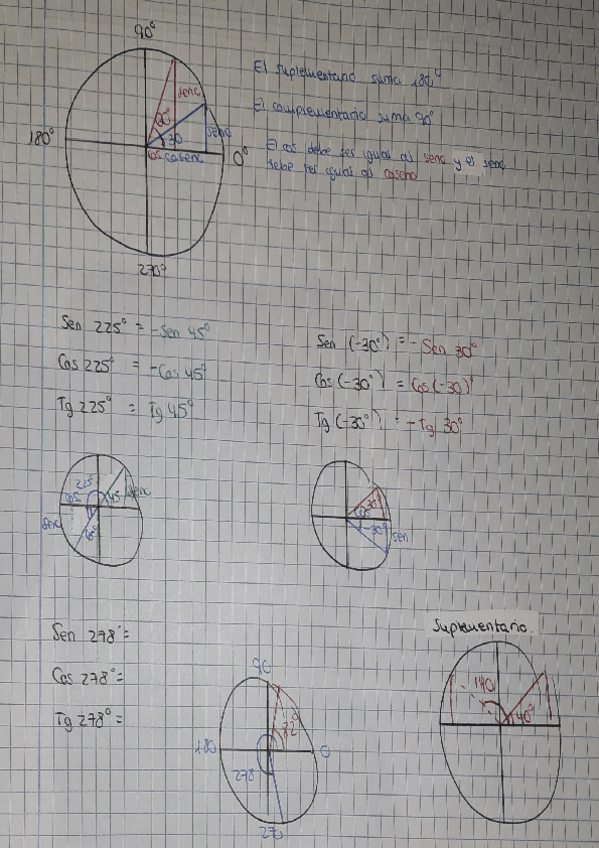 90°
El suplementario suma 180°
El complementario suma 90°
El cos debe ser igual al seno y el seno
debe ser igual al coseno
seno
30
seno
180°
cos coseno
0°
270°
Sen 225° = -Sen 45°
Cos 225° = -Cos 45°
Tg 225° = Tg 45°
Sen (-30°) = -Sen 30°
Cos (-30°) = Cos (-30)°
Tg (-30°) = -Tg 30°
225
cos
45
seno
seno
30°
cos
-30°
sen
Sen 278°=
Cos 278°=
Tg 278°=
90
82°
180
0
278
270
Suplementario.
140
40°